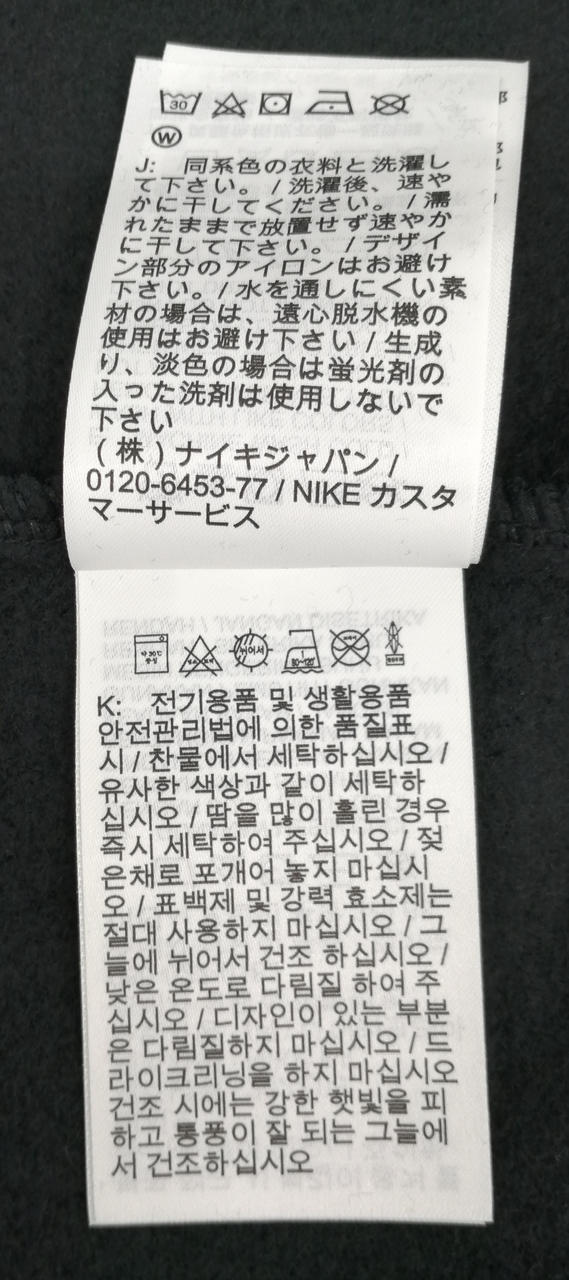 30
W
J: 同系色の衣料と洗濯し
て下さい。 / 洗濯後、速や
かに干してください。 / 濡
れたままで放置せず速やか
に干して下さい。 / デザイ
ン部分のアイロンはお避け
下さい。/ 水を通しにくい素
材の場合は、遠心脱水機の
使用はお避け下さい / 生成
り、淡色の場合は蛍光剤の
入った洗剤は使用しないで
下さい
(株) ナイキジャパン /
0120-6453-77 / NIKE カスタ
マーサービス
약 30℃
중성
뉘어서
80~120℃
드라이
K: 전기용품 및 생활용품
안전관리법에 의한 품질표
시 / 찬물에서 세탁하십시오 /
유사한 색상과 같이 세탁하
십시오 / 땀을 많이 흘린 경우
즉시 세탁하여 주십시오 / 젖
은채로 포개어 놓지 마십시
오 / 표백제 및 강력 효소제는
절대 사용하지 마십시오 / 그
늘에 뉘어서 건조 하십시오 /
낮은 온도로 다림질 하여 주
십시오 / 디자인이 있는 부분
은 다림질하지 마십시오 / 드
라이크리닝을 하지 마십시오
건조 시에는 강한 햇빛을 피
하고 통풍이 잘 되는 그늘에
서 건조하십시오